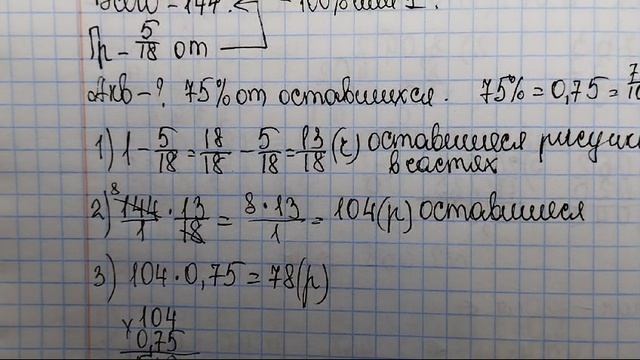 Всего - 144. - 100% или 1.
Пр - 5/18 от
Акв - ? 75% от оставшихся. 75% = 0,75 =
1) 1 - 5/18 = 18/18 - 5/18 = 13/18 (ч) оставшиеся рисунки
в частях
2) 144/1 · 13/18 = 8·13/1 = 104 (р) оставшиеся
8
3) 104 · 0,75 = 78 (р)
× 104
0,75